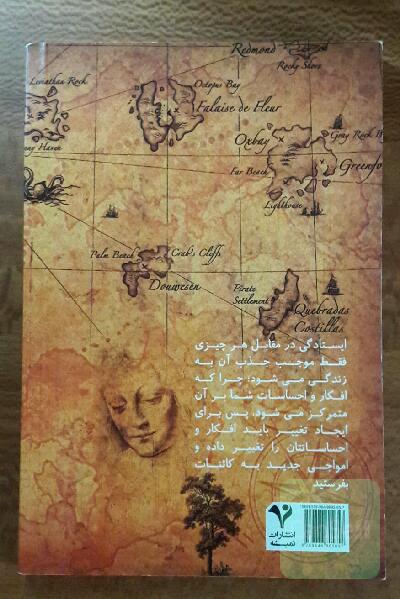 Redmond
Rocky Shore
Leviathan Rock
Octopus Bay
Falaise de Fleur
Oxbay
Gray Rock
Far Beach
Greenfo
Lighthouse
ny Haven
Palm Beach
Crab's Cliffs
Douwesen
Pirate
Settlement
Quebradas
Costillas
ایستادگی در مقابل هر چیزی
فقط موجب جذب آن به
زندگی می شود؛ چرا که
افکار و احساسات شما بر آن
متمرکز می شود، پس برای
ایجاد تغییر باید افکار و
احساساتتان را تغییر داده و
امواجی جدید به کائنات
بفرستید
انتشارات